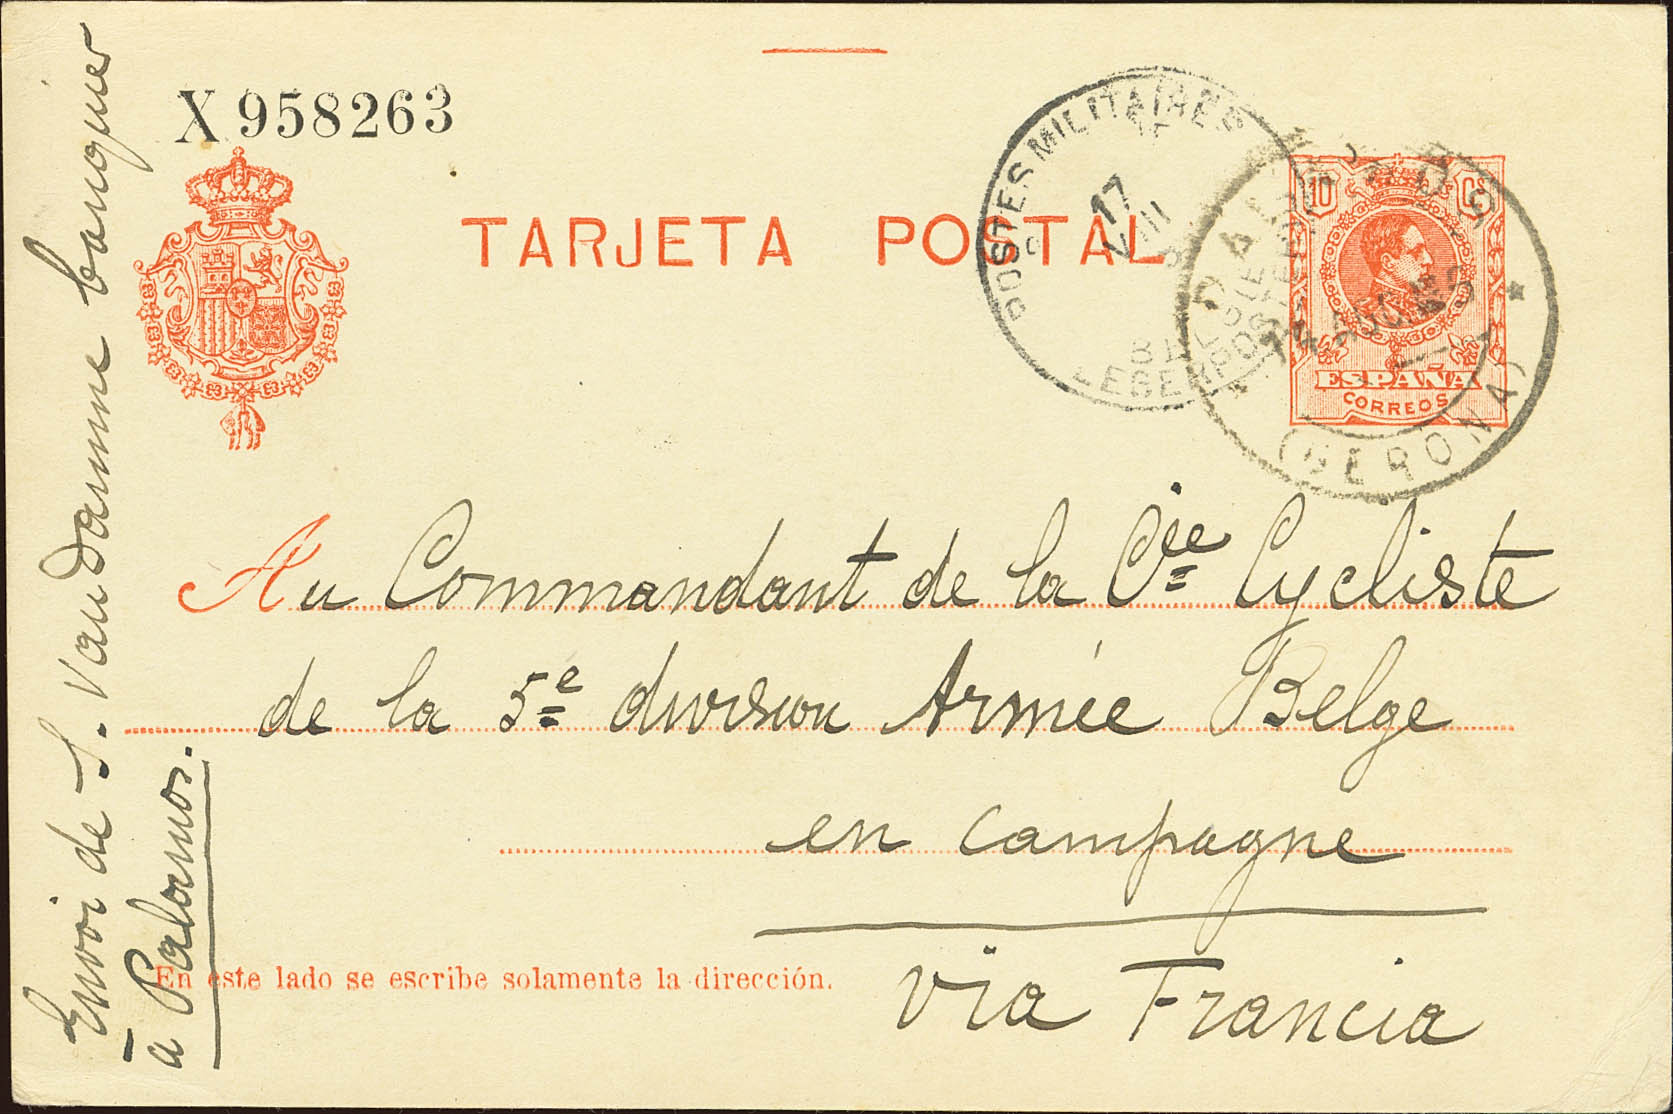 X 958263
TARJETA POSTAL
POSTES MILITAIRES
17
VIII
BELGIË
LEGERPOSTERIJ
10 Cs
ESPAÑA
CORREOS
(GERONA)
Au Commandant de la Cie Cycliste
de la 5e division Armée Belge
en campagne
via Francia
En este lado se escribe solamente la dirección.
Envoi de S. Vandamme banquier
à Palamos.